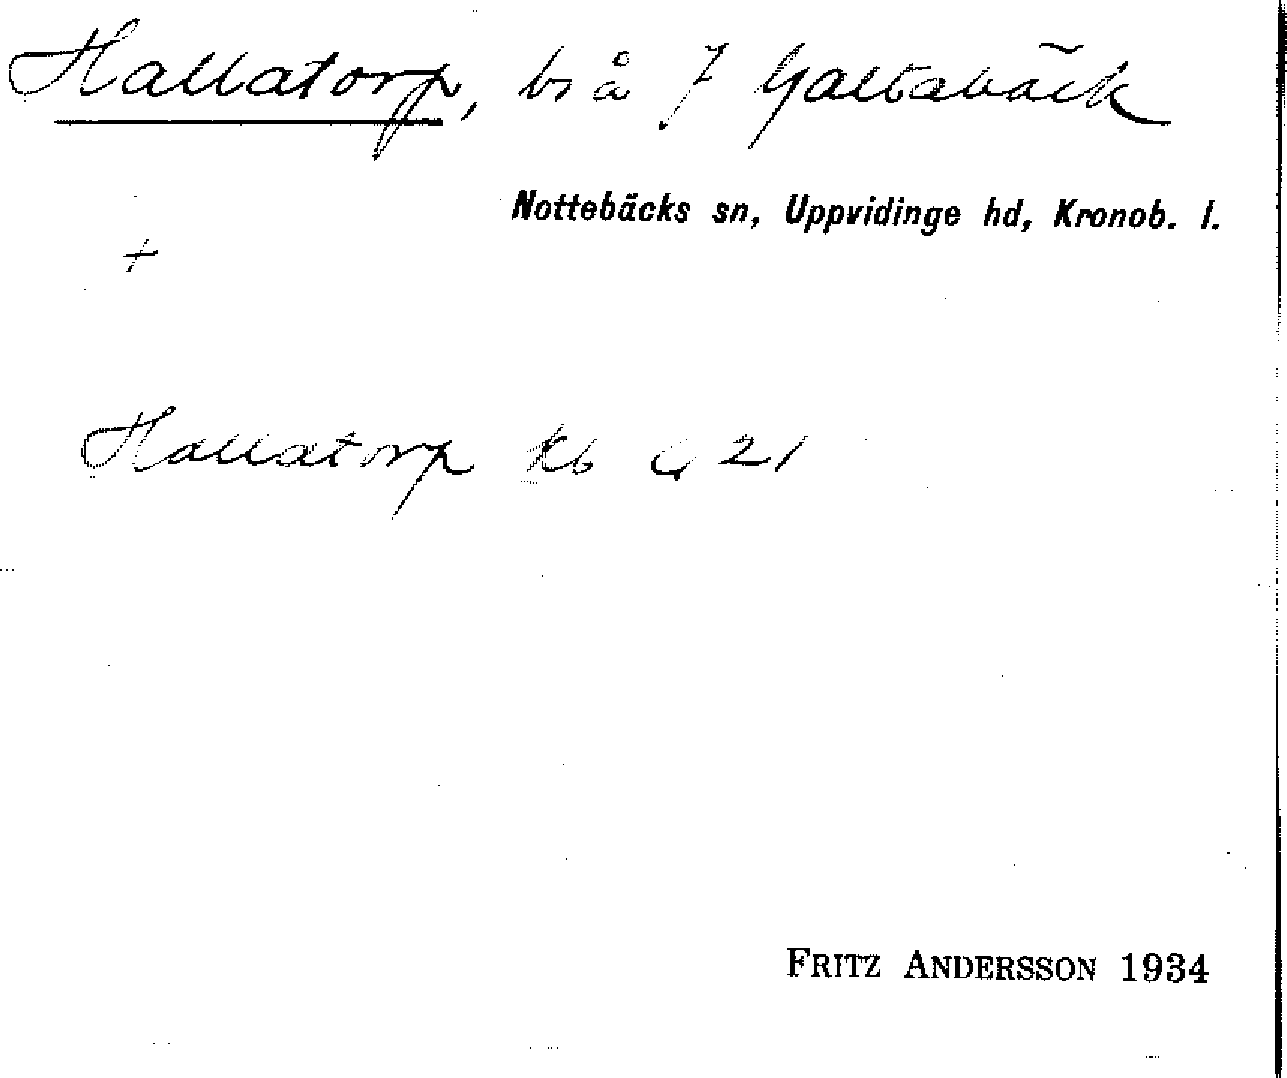 Hallatorp, bs å 7 Galtabäck
Nottebäcks sn, Uppvidinge hd, Kronob. l.
+
Hallatorp Kb 21
FRITZ ANDERSSON 1934